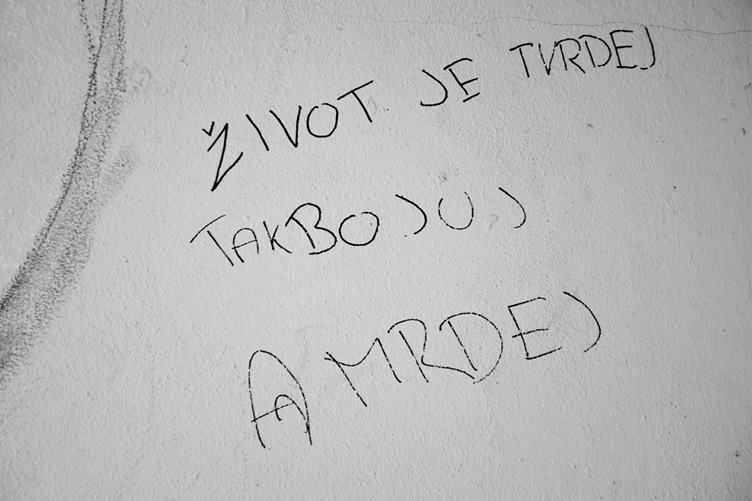 ŽIVOT JE TVRDEJ
TAK BOJUJ
A MRDEJ